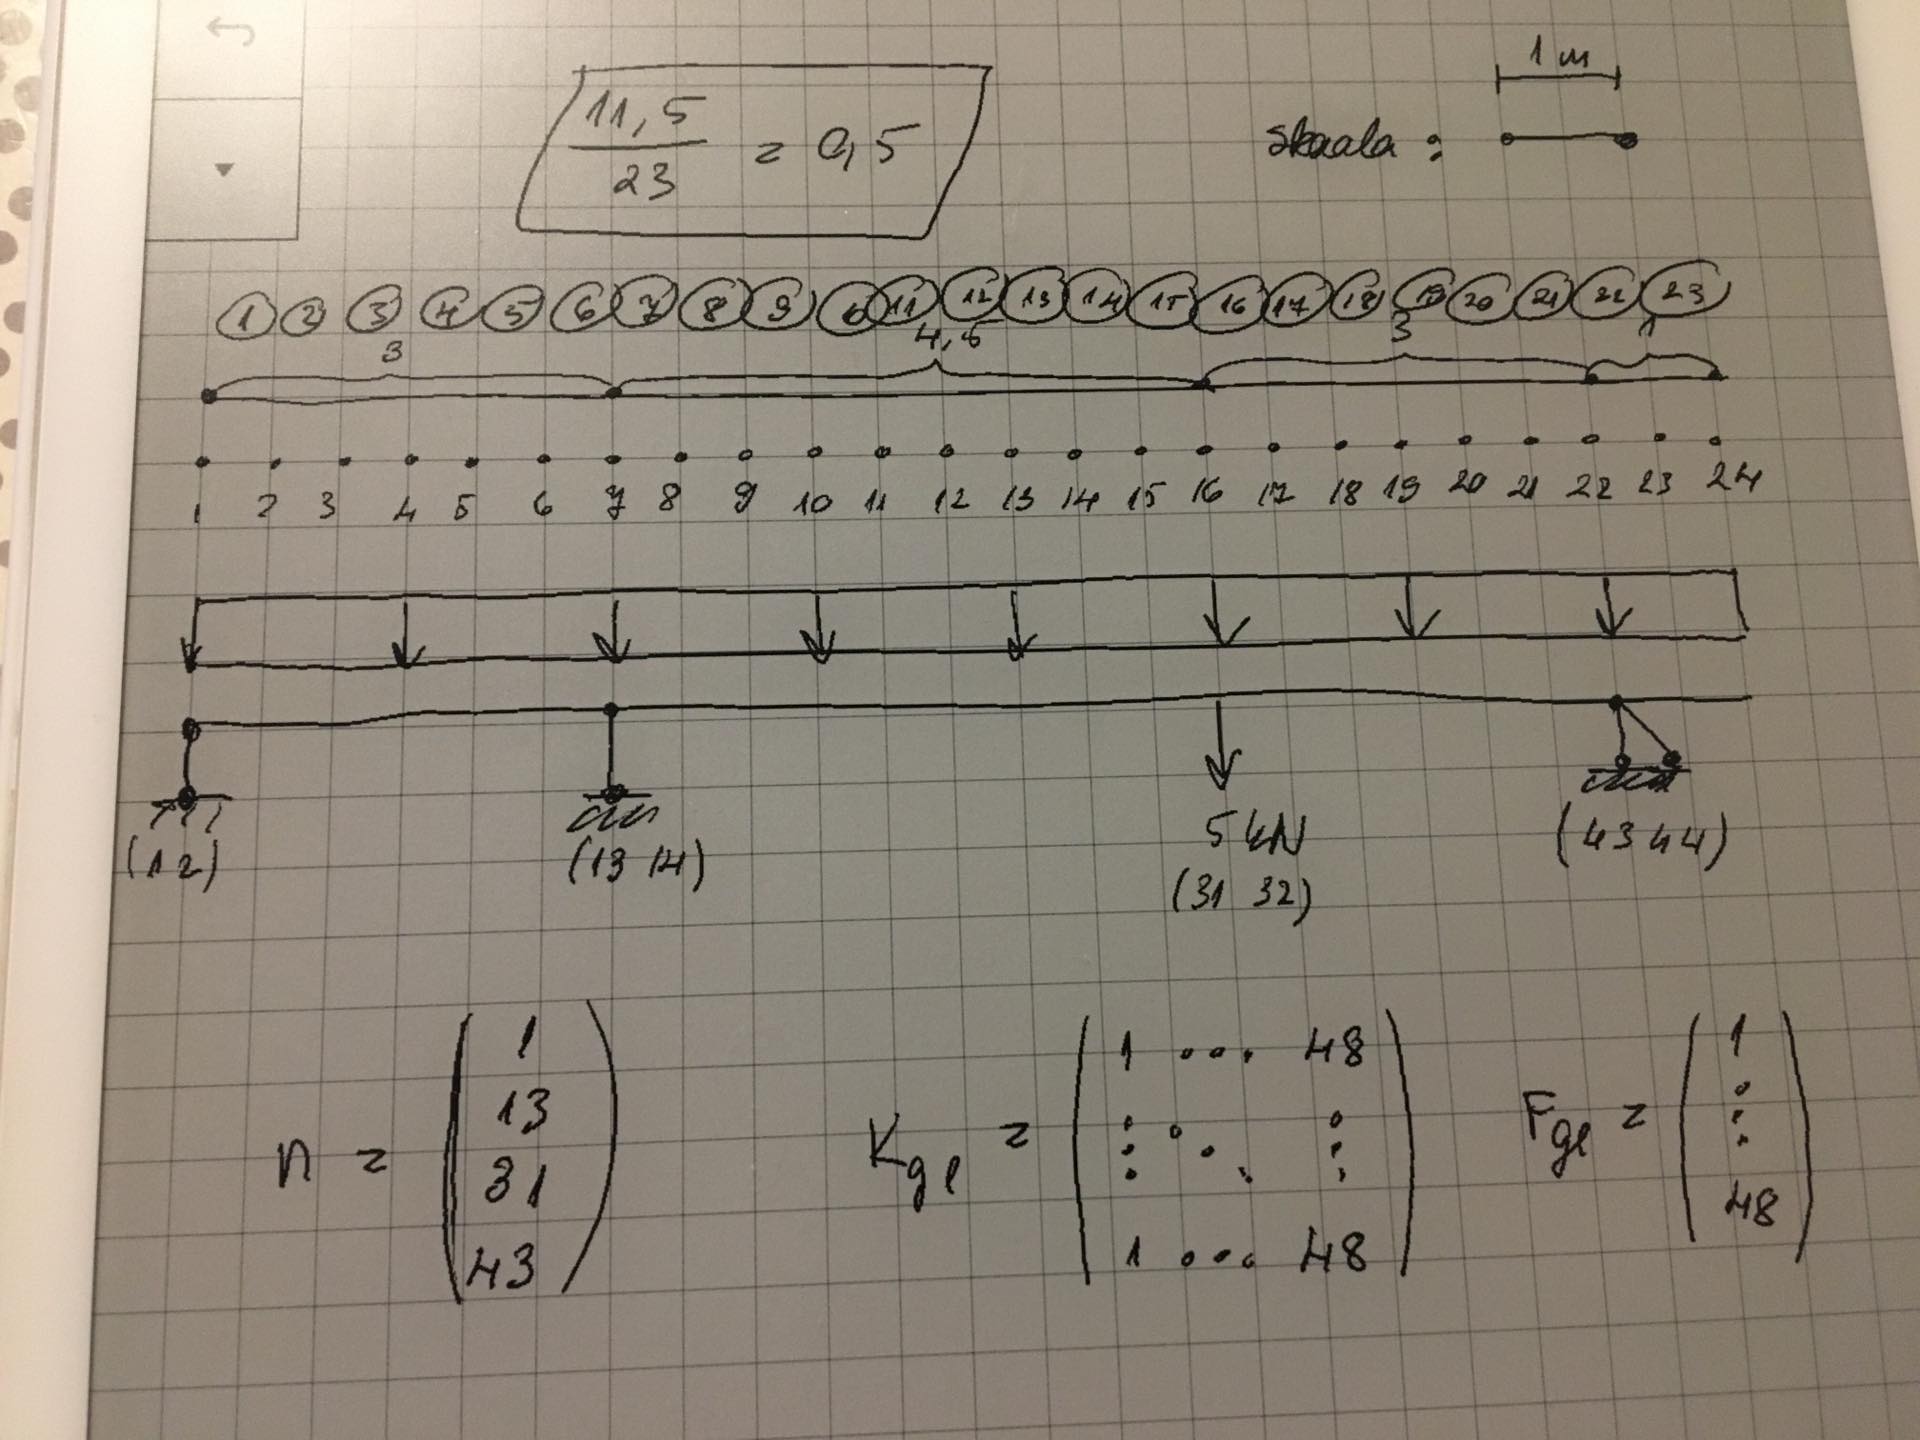 1 m
11,5
23
= 0,5
skaala :
1 2 3 4 5 6 7 8 9 10 11 12 13 14 15 16 17 18 19 20 21 22 23
3 4,5 3 1
1 2 3 4 5 6 7 8 9 10 11 12 13 14 15 16 17 18 19 20 21 22 23 24
5 kN
(1 2) (13 14) (31 32) (43 44)
n = ( 1 13 31 43 )
Kgl = ( 1 ... 48 ⋮ ⋱ ⋮ 1 ... 48 )
Fgl = ( 1 ⋮ 48 )